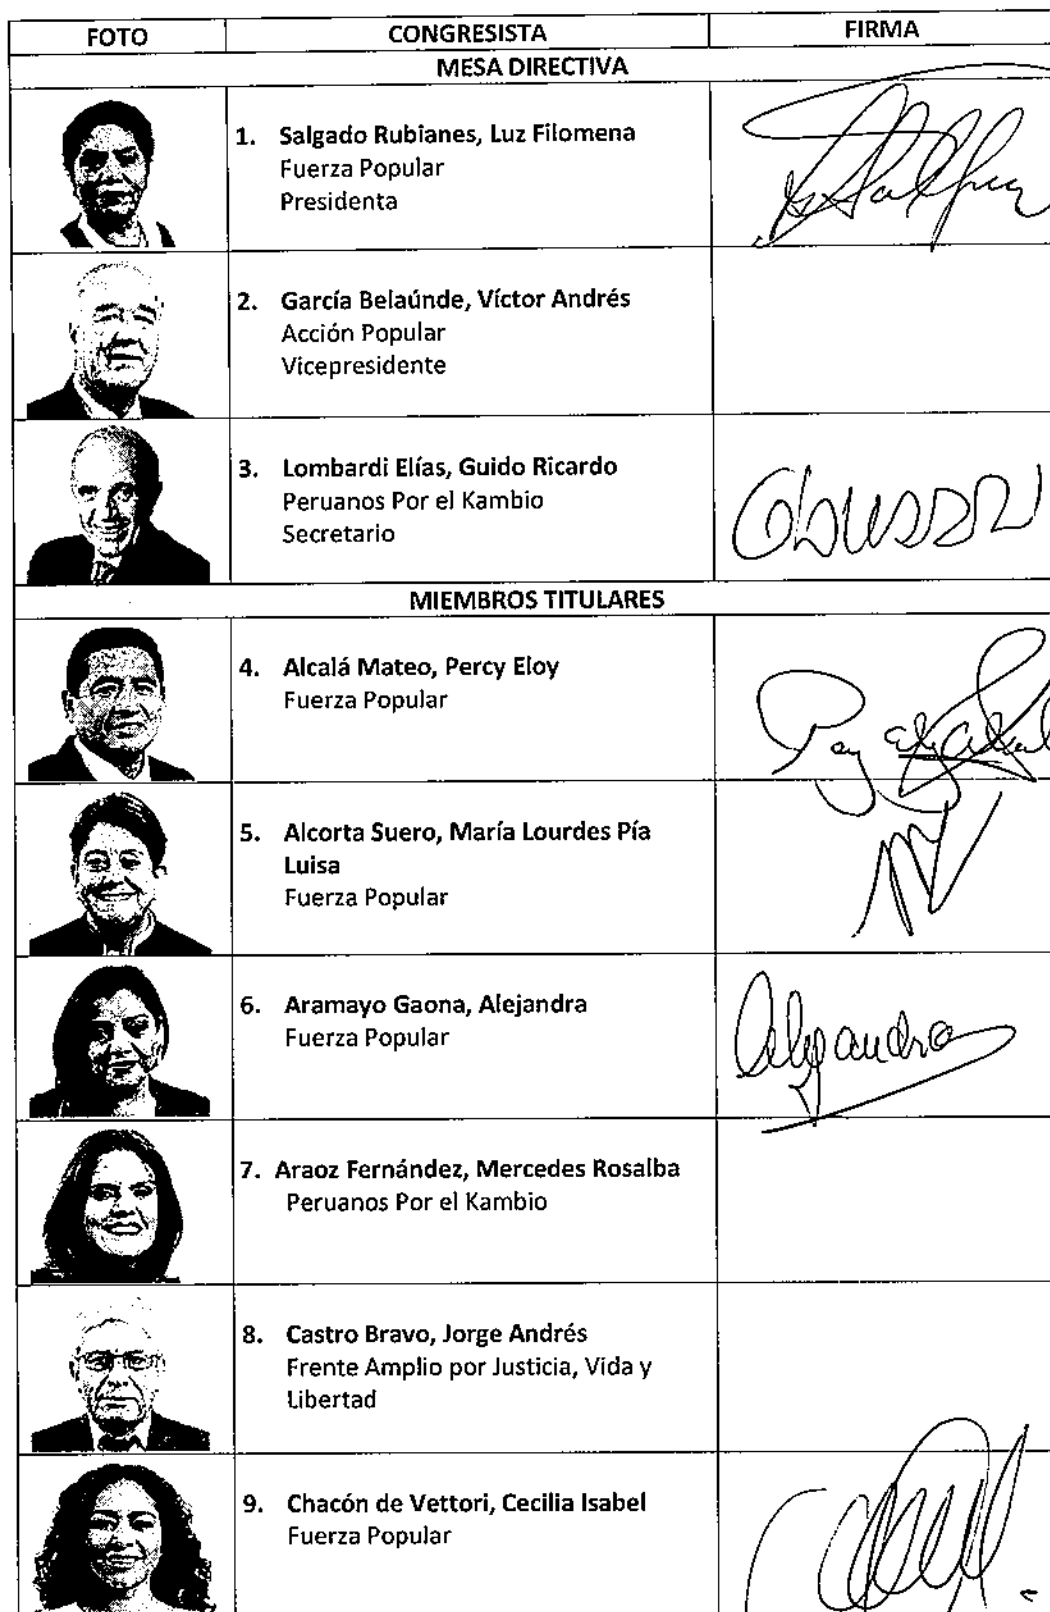 FOTO CONGRESISTA FIRMA
MESA DIRECTIVA
1. Salgado Rubianes, Luz Filomena
Fuerza Popular
Presidenta
2. García Belaúnde, Víctor Andrés
Acción Popular
Vicepresidente
3. Lombardi Elías, Guido Ricardo
Peruanos Por el Kambio
Secretario
MIEMBROS TITULARES
4. Alcalá Mateo, Percy Eloy
Fuerza Popular
5. Alcorta Suero, María Lourdes Pía
Luisa
Fuerza Popular
6. Aramayo Gaona, Alejandra
Fuerza Popular
Alejandra
7. Araoz Fernández, Mercedes Rosalba
Peruanos Por el Kambio
8. Castro Bravo, Jorge Andrés
Frente Amplio por Justicia, Vida y
Libertad
9. Chacón de Vettori, Cecilia Isabel
Fuerza Popular